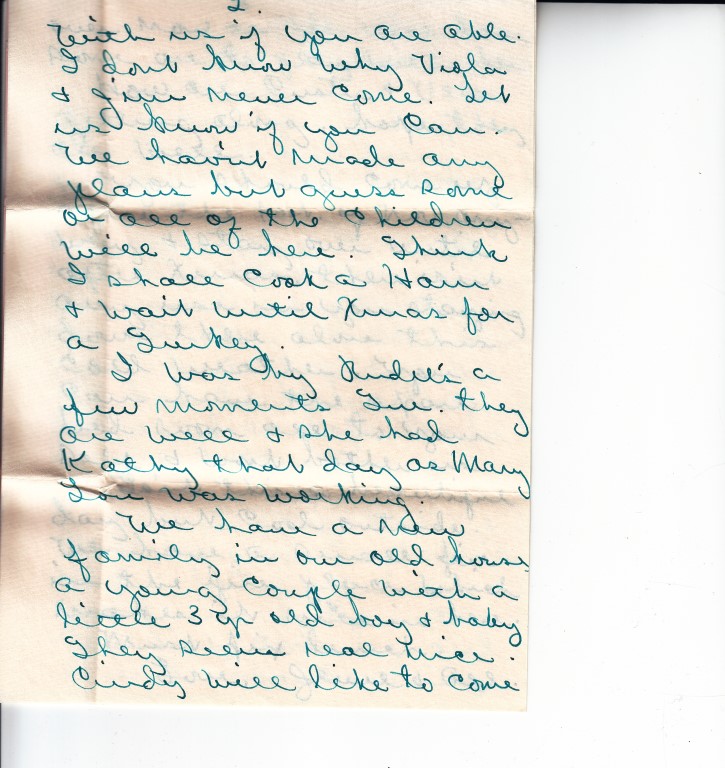 2.
with us if you are able.
I dont know why Viola
& Jim never come. Let
us know if you can.
We havn't made any
plans but guess some
or all of the children
will be here. Think
I shall cook a Ham
& wait until Xmas for
a Turkey.
I was by a
few moments Tue. they
are well & she had
Kathy that day as Mary
Lou was working.
We have a new
family in our old house
a young couple with a
little 3 yr old boy & baby
They seem real nice.
Cindy will like to come